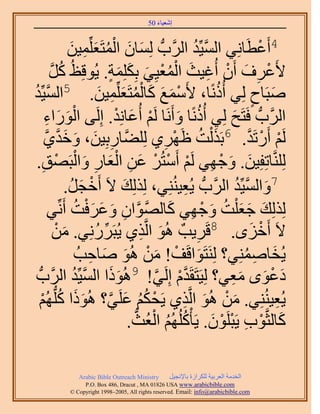 إشعياء 50
4أَعْطَانِي السَّيِّدُ الرَّبُّ لِسَانَ الْمُتَعَلِّمِينَ
لأَعْرِفَ أَنْ أُغِيثَ الْمُعْيِيَ بِكَلِمَةٍ. يُوقِظُ كُلَّ
صَبَاحٍ لِي أُذُنًا، لأَسْمَعَ كَالْمُتَعَلِّمِينَ. 5السَّيِّدُ
الرَّبُّ فَتَحَ لِي أُذُنًا وَأَنَا لَمْ أُعَانِدْ. إِلَى الْوَرَاءِ
لَمْ أَرْتَدَّ. 6بَذَلْتُ ظَهْرِي لِلضَّارِبِينَ، وَخَدَّيَّ
لِلنَّاتِفِينَ. وَجْهِي لَمْ أَسْتُرْ عَنِ الْعَارِ وَالْبَصْقِ.
7وَالسَّيِّدُ الرَّبُّ يُعِينُنِي، لِذلِكَ لاَ أَخْجَلُ.
لِذلِكَ جَعَلْتُ وَجْهِي كَالصَّوَّانِ وَعَرَفْتُ أَنِّي
لاَ أَخْزَى. 8قَرِيبٌ هُوَ الَّذِي يُبَرِّرُنِي. مَنْ
يُخَاصِمُنِي؟ لِنَتَوَاقَفْ! مَنْ هُوَ صَاحِبُ
دَعْوَى مَعِي؟ لِيَتَقَدَّمْ إِلَيَّ! 9هُوَذَا السَّيِّدُ الرَّبُّ
يُعِينُنِي. مَنْ هُوَ الَّذِي يَحْكُمُ عَلَيَّ؟ هُوَذَا كُلُّهُمْ
كَالثَّوْبِ يَبْلَوْنَ. يَأْكُلُهُمُ الْعُثُّ.
الخدمة العربية للكرازة بالإنجيل Arabic Bible Outreach Ministry
P.O. Box 486, Dracut , MA 01826 USA www.arabicbible.com
© Copyright 1998–2005, All rights reserved. Email: info@arabicbible.com